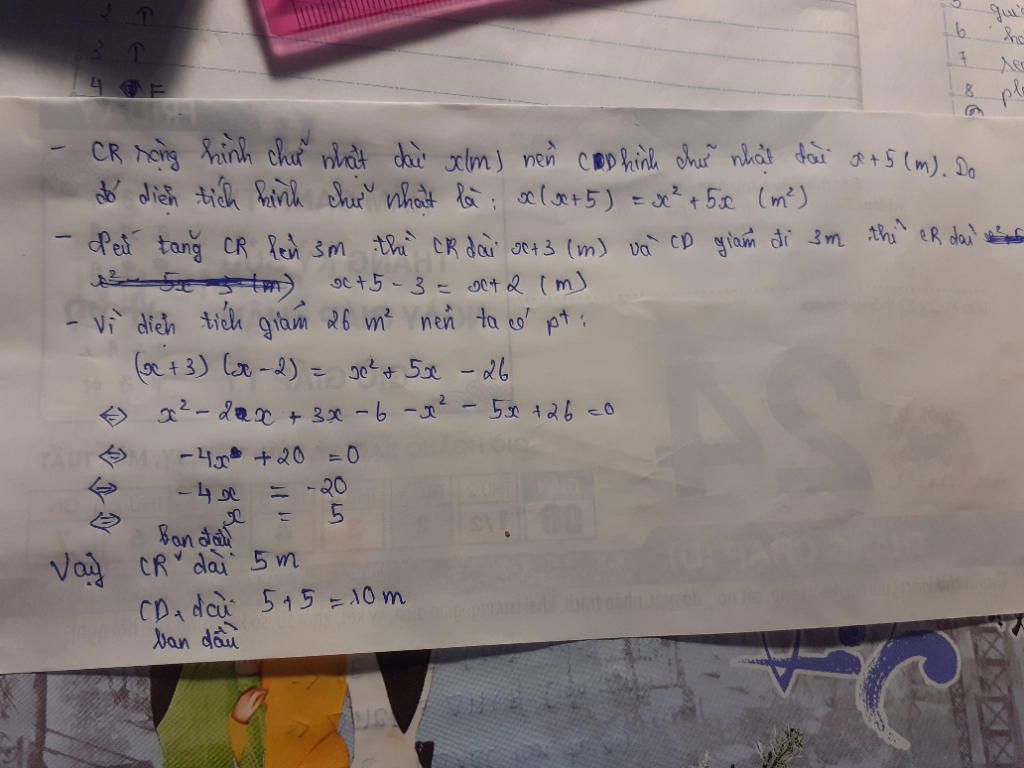 2 ↑
3 ↑
4 F
6
7
8
- CR rộng hình chữ nhật dài x(m) nên CD hình chữ nhật dài x+5 (m). Do
đó diện tích hình chữ nhật là : x(x+5) = x² + 5x (m²)
- Nếu tăng CR lên 3m thì CR dài x+3 (m) và CD giảm đi 3m thì CR dài
x² - 5x - 3 (m) x+5-3 = x+2 (m)
- Vì diện tích giảm 26 m² nên ta có pt :
(x+3) (x-2) = x² + 5x - 26
⇔ x² - 2x + 3x - 6 - x² - 5x + 26 = 0
⇔ -4x + 20 = 0
⇔ -4x = -20
⇔ x = 5
ban đầu
Vậy CR dài 5m
CD dài 5+5 = 10m
ban đầu
24